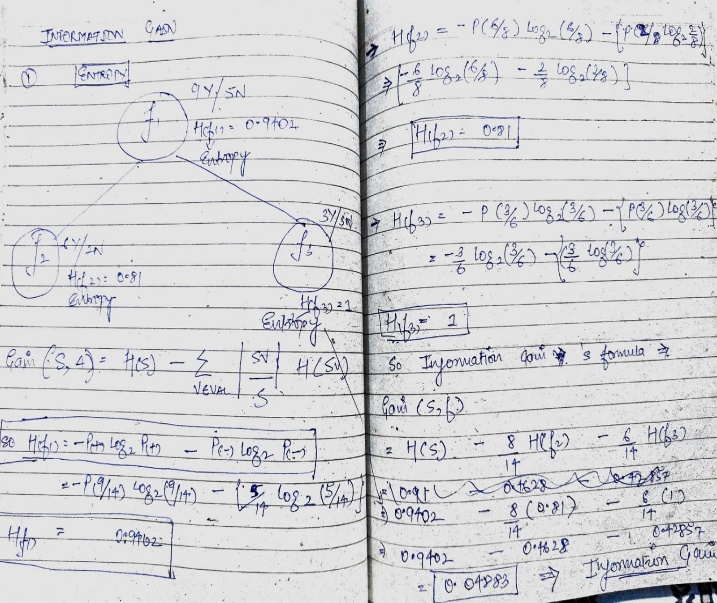 INFORMATION GAIN
① ENTROPY
9Y/5N
f1 H(f1) = 0.9402
Entropy
f2 6Y/2N
H(f2) = 0.81
Entropy
3Y/3N
f3
H(f3) = 1
Entropy
Gain (S, A) = H(S) - Σ VEVAL |SV/S| H(SV)
So H(f1) = -P(+) log2 P(+) - P(-) log2 P(-)
= -P(9/14) log2 (9/14) - {5/14 log2 (5/14)}
H(f1) = 0.9402
⇒ H(f2) = - P(6/8) log2 (6/8) - {P(2/8) log2 2/8}
⇒ [-6/8 log2 (6/8) - 2/8 log2 (2/8)]
⇒ H(f2) = 0.81
⇒ H(f3) = - P(3/6) log2 (3/6) - {P(3/6) log(3/6)}
= -3/6 log2 (3/6) - {(3/6 log 3/6)}
H(f3) = 1
So Information Gain 's formula ⇒
Gain (S, f)
= H(S) - 8/14 H(f2) - 6/14 H(f3)
⇒ 0.9402 - 8/14 (0.81) - 6/14 (1)
⇒ 0.9402 - 0.4628 - 0.42857
= 0.04883 ⇒ Information Gain